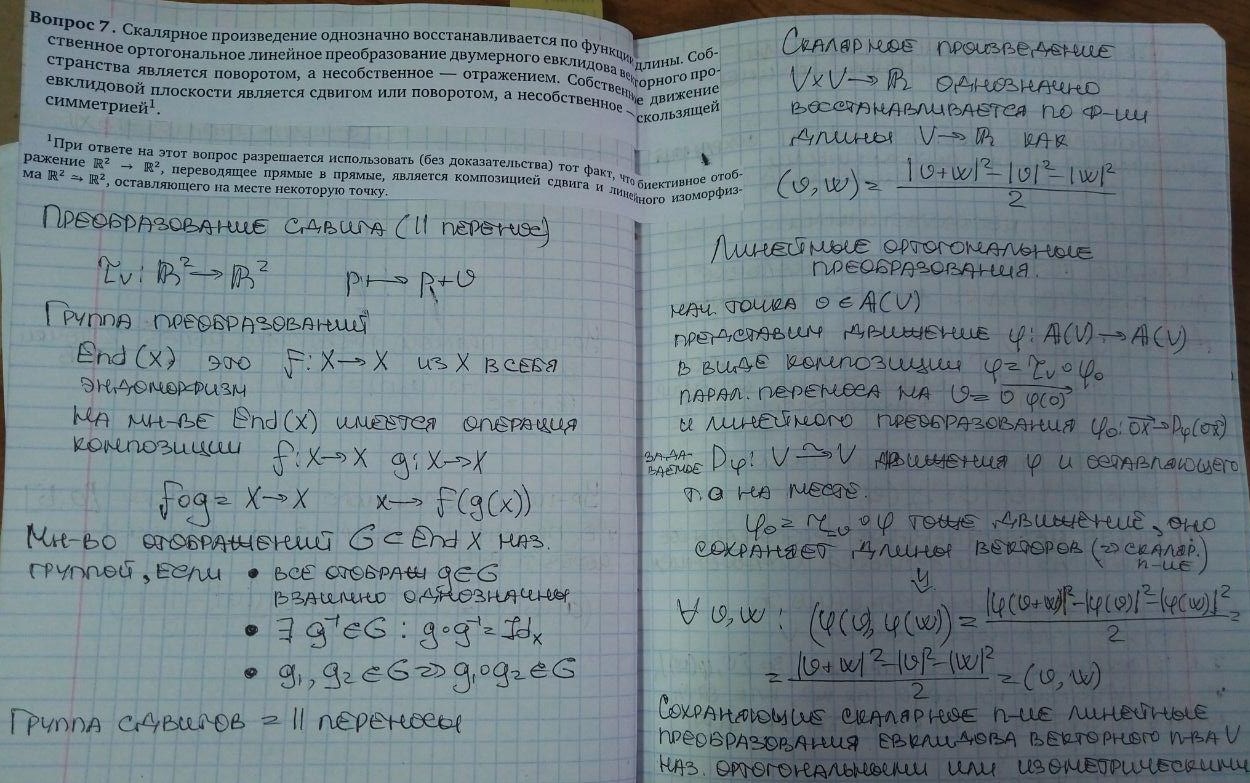 Вопрос 7. Скалярное произведение однозначно восстанавливается по функции длины. Соб-
ственное ортогональное линейное преобразование двумерного евклидова векторного про-
странства является поворотом, а несобственное — отражением. Собственное движение
евклидовой плоскости является сдвигом или поворотом, а несобственное — скользящей
симметрией¹.
¹При ответе на этот вопрос разрешается использовать (без доказательства) тот факт, что биективное отоб-
ражение ℝ² → ℝ², переводящее прямые в прямые, является композицией сдвига и линейного изоморфиз-
ма ℝ² ⥲ ℝ², оставляющего на месте некоторую точку.
ПРЕОБРАЗОВАНИЕ СДВИГА (|| ПЕРЕНОС)
τv: ℝ² → ℝ² p ↦ p+v
ГРУППА ПРЕОБРАЗОВАНИЙ
End(X) ЭТО f: X→X ИЗ X В СЕБЯ
ЭНДОМОРФИЗМ
НА МН-ВЕ End(X) ИМЕЕТСЯ ОПЕРАЦИЯ
КОМПОЗИЦИИ f: X→X g: X→X
f∘g = X→X x→ f(g(x))
МН-ВО ОТОБРАЖЕНИЙ G ⊂ End X НАЗ.
ГРУППОЙ, ЕСЛИ • ВСЕ ОТОБРАЖ g∈G
ВЗАИМНО ОДНОЗНАЧНЫ
• ∃ g⁻¹∈G : g∘g⁻¹ = Idx
• g₁, g₂ ∈ G ⇒ g₁∘g₂ ∈ G
ГРУППА СДВИГОВ = || ПЕРЕНОСЫ
СКАЛЯРНОЕ ПРОИЗВЕДЕНИЕ
V×V→ℝ ОДНОЗНАЧНО
ВОССТАНАВЛИВАЕТСЯ ПО Ф-ИИ
ДЛИНЫ V→ℝ КАК
(v,w) = (|v+w|²−|v|²−|w|²)/2
ЛИНЕЙНЫЕ ОРТОГОНАЛЬНЫЕ
ПРЕОБРАЗОВАНИЯ.
НАЧ. ТОЧКА O ∈ 𝔸(V)
ПРЕДСТАВИМ ДВИЖЕНИЕ φ: 𝔸(V)→𝔸(V)
В ВИДЕ КОМПОЗИЦИИ φ = τv∘φ₀
ПАРАЛ. ПЕРЕНОСА НА v = Oφ(O)
И ЛИНЕЙНОГО ПРЕОБРАЗОВАНИЯ φ₀: Ox→Dφ(Ox)
ЗАДА-
ВАЕМОЕ Dφ: V ⥲ V ДВИЖЕНИЯ φ И ОСТАВЛЯЮЩЕГО
Т. O НА МЕСТЕ.
φ₀ = τ-v∘φ ТОЖЕ ДВИЖЕНИЕ, ОНО
СОХРАНЯЕТ ДЛИНЫ ВЕКТОРОВ (⇒ СКАЛЯР.
П-ИЕ)
⇓
∀ v,w : (φ(v), φ(w)) = (|φ(v+w)|²−|φ(v)|²−|φ(w)|²)/2 =
= (|v+w|²−|v|²−|w|²)/2 = (v,w)
СОХРАНЯЮЩИЕ СКАЛЯРНОЕ П-ИЕ ЛИНЕЙНЫЕ
ПРЕОБРАЗОВАНИЯ ЕВКЛИДОВА ВЕКТОРНОГО П-ВА V
НАЗ. ОРТОГОНАЛЬНЫМИ ИЛИ ИЗОМЕТРИЧЕСКИМИ